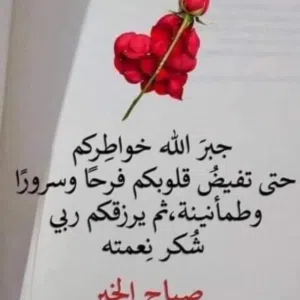 جبرَ الله خواطِركم
حتى تفيضُ قلوبكم فرحًا وسرورًا
وطمأنينة،ثم يرزقكم ربي
شُكر نِعمته
صباح الخير